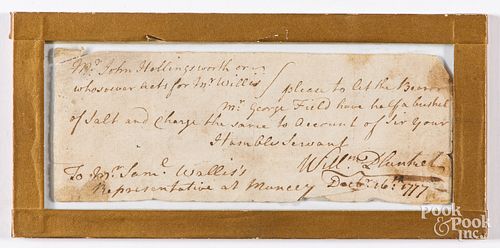 Mr. John Hollingsworth or
whosoever acts for Mr Willis
please to let the Bearer
Mr. George Field have half a bushel
of Salt and Charge the same to Account of Sir Your
Humble Servant
Willm Plunket
To Mr. Saml. Wallis's
Representative at Muncey
Decbr. 16th. 1777
Pook
& Pook
Inc.